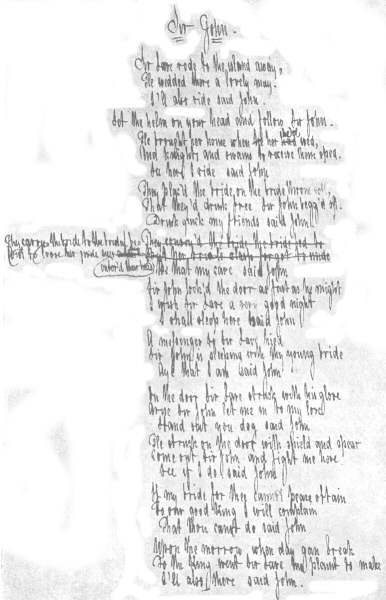 Sir John.
Sir Lave rode to the island away,
He wedded there a lovely may.
I'll also ride said John.
Set the helm on your head and follow Sir John.
He brought her home when he her had there wed,
And knights and swains to receive them sped.
Is here I ride said John
They plac'd the bride on the bride throne
That they'd drunk free Sir John begg'd of.
Drink quick my friends said John
They carry the bride to the bridal bed They carry'd the bride the bride bed to
forgot to loose her were And her forgot to undo
untied their
See that my care said John
Sir John lock'd the door as fast as he might
I wish Sir Lave a very good night
I shall sleep here said John
A messenger to Sir Lave hied
Sir John is sleeping with thy young bride
Aye that I am said John
On the door Sir Lave struck with his glove
Arise Sir John let me in to my love
Stand out you dog said John
He struck on the door with shield and spear
Come out Sir John and fight me here
See if I do said John
If my bride for they cannot peace obtain
To our good king I will complain
That thou canst do said John
Upon the morrow when day gan break
To the king went Sir Lave his plaint to make
I'll also there said John.